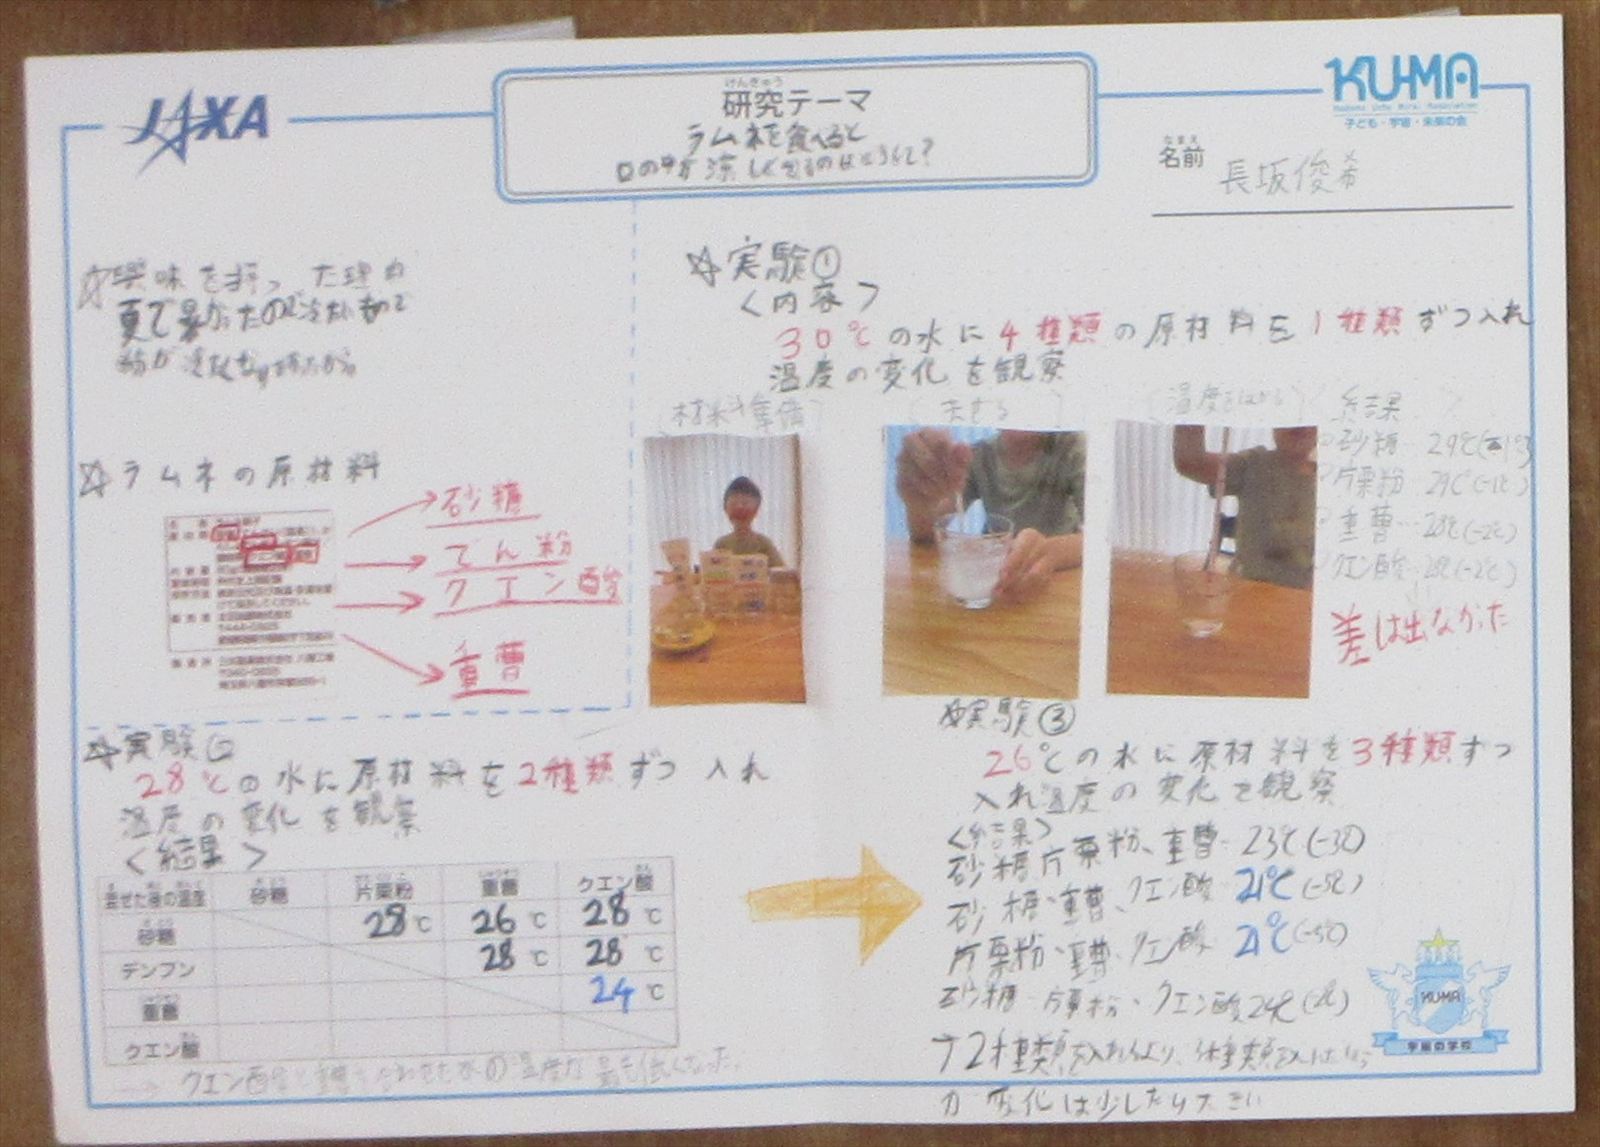 JAXA
けんきゅう
研究テーマ
ラムネを食べると
口の中が涼しくなるのはどうして?
KUMA
子ども・宇宙・未来の会
なまえ
名前
長坂俊希
☆興味を持った理由
夏で暑かったので冷たいもので
☆ラムネの原材料
砂糖
でん粉
クエン酸
重曹
☆実験①
<内容>
30℃の水に4種類の原材料を1種類ずつ入れ
温度の変化を観察
材料準備
まぜる
温度をはかる
結果
砂糖 29℃(-1℃)
片栗粉 29℃(-1℃)
重曹 28℃(-2℃)
クエン酸 28℃(-2℃)
差は出なかった
☆実験②
28℃の水に原材料を2種類ずつ入れ
温度の変化を観察
<結果>
混ぜた後の温度 砂糖 片栗粉 重曹 クエン酸
砂糖 28℃ 26℃ 28℃
デンプン 28℃ 28℃
重曹 24℃
クエン酸
→クエン酸と重曹を合わせた水の温度が最も低くなった。
☆実験③
26℃の水に原材料を3種類ずつ
入れ温度の変化を観察
<結果>
砂糖、片栗粉、重曹 23℃(-3℃)
砂糖・重曹、クエン酸 21℃(-5℃)
片栗粉・重曹・クエン酸 21℃(-5℃)
砂糖・片栗粉・クエン酸 24℃(-2℃)
→2種類を入れるより、3種類を入れた
方が変化は少しだけ大きい
KUMA
宇宙の学校